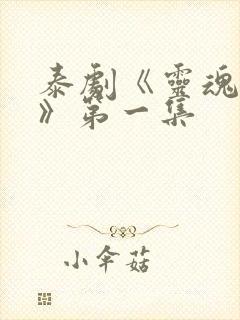 泰劇《靈魂
》第一集
小伞菇